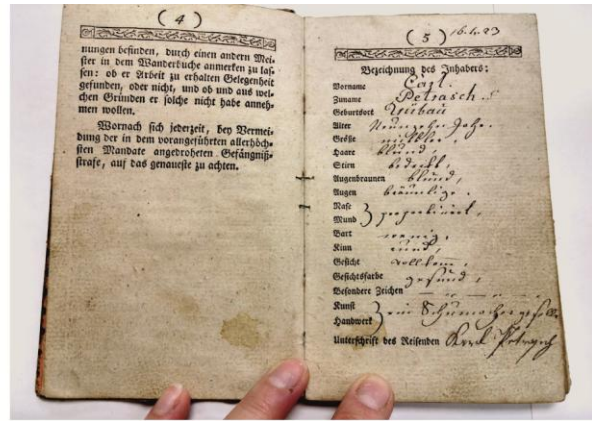 ( 4 )
nungen befinden, durch einen andern Mei-
ster in dem Wanderbuche anmerken zu las-
sen: ob er Arbeit zu erhalten Gelegenheit
gefunden, oder nicht, und ob und aus wel-
chen Gründen er solche nicht habe anneh-
men wollen.
Wornach sich jederzeit, bey Vermei-
dung der in dem vorangeführten allerhöch-
sten Mandate angedroheten Gefängniß-
strafe, auf das genaueste zu achten.
( 5 )
Bezeichnung des Inhabers:
Vorname Carl
Zuname Petrasch
Geburtsort
Alter Neunzehn Jahr.
Größe mittler,
Haare blond
Stirn bedeckt,
Augenbraunen blond,
Augen bräunlige.
Nase
Mund } proportionirt,
Bart wenig,
Kinn rund,
Gesicht vollkom,
Gesichtsfarbe gesund,
Besondere Zeichen
Kunst
Handwerk } ein Schumachergesell
Unterschrift des Reisenden Karl Petrasch